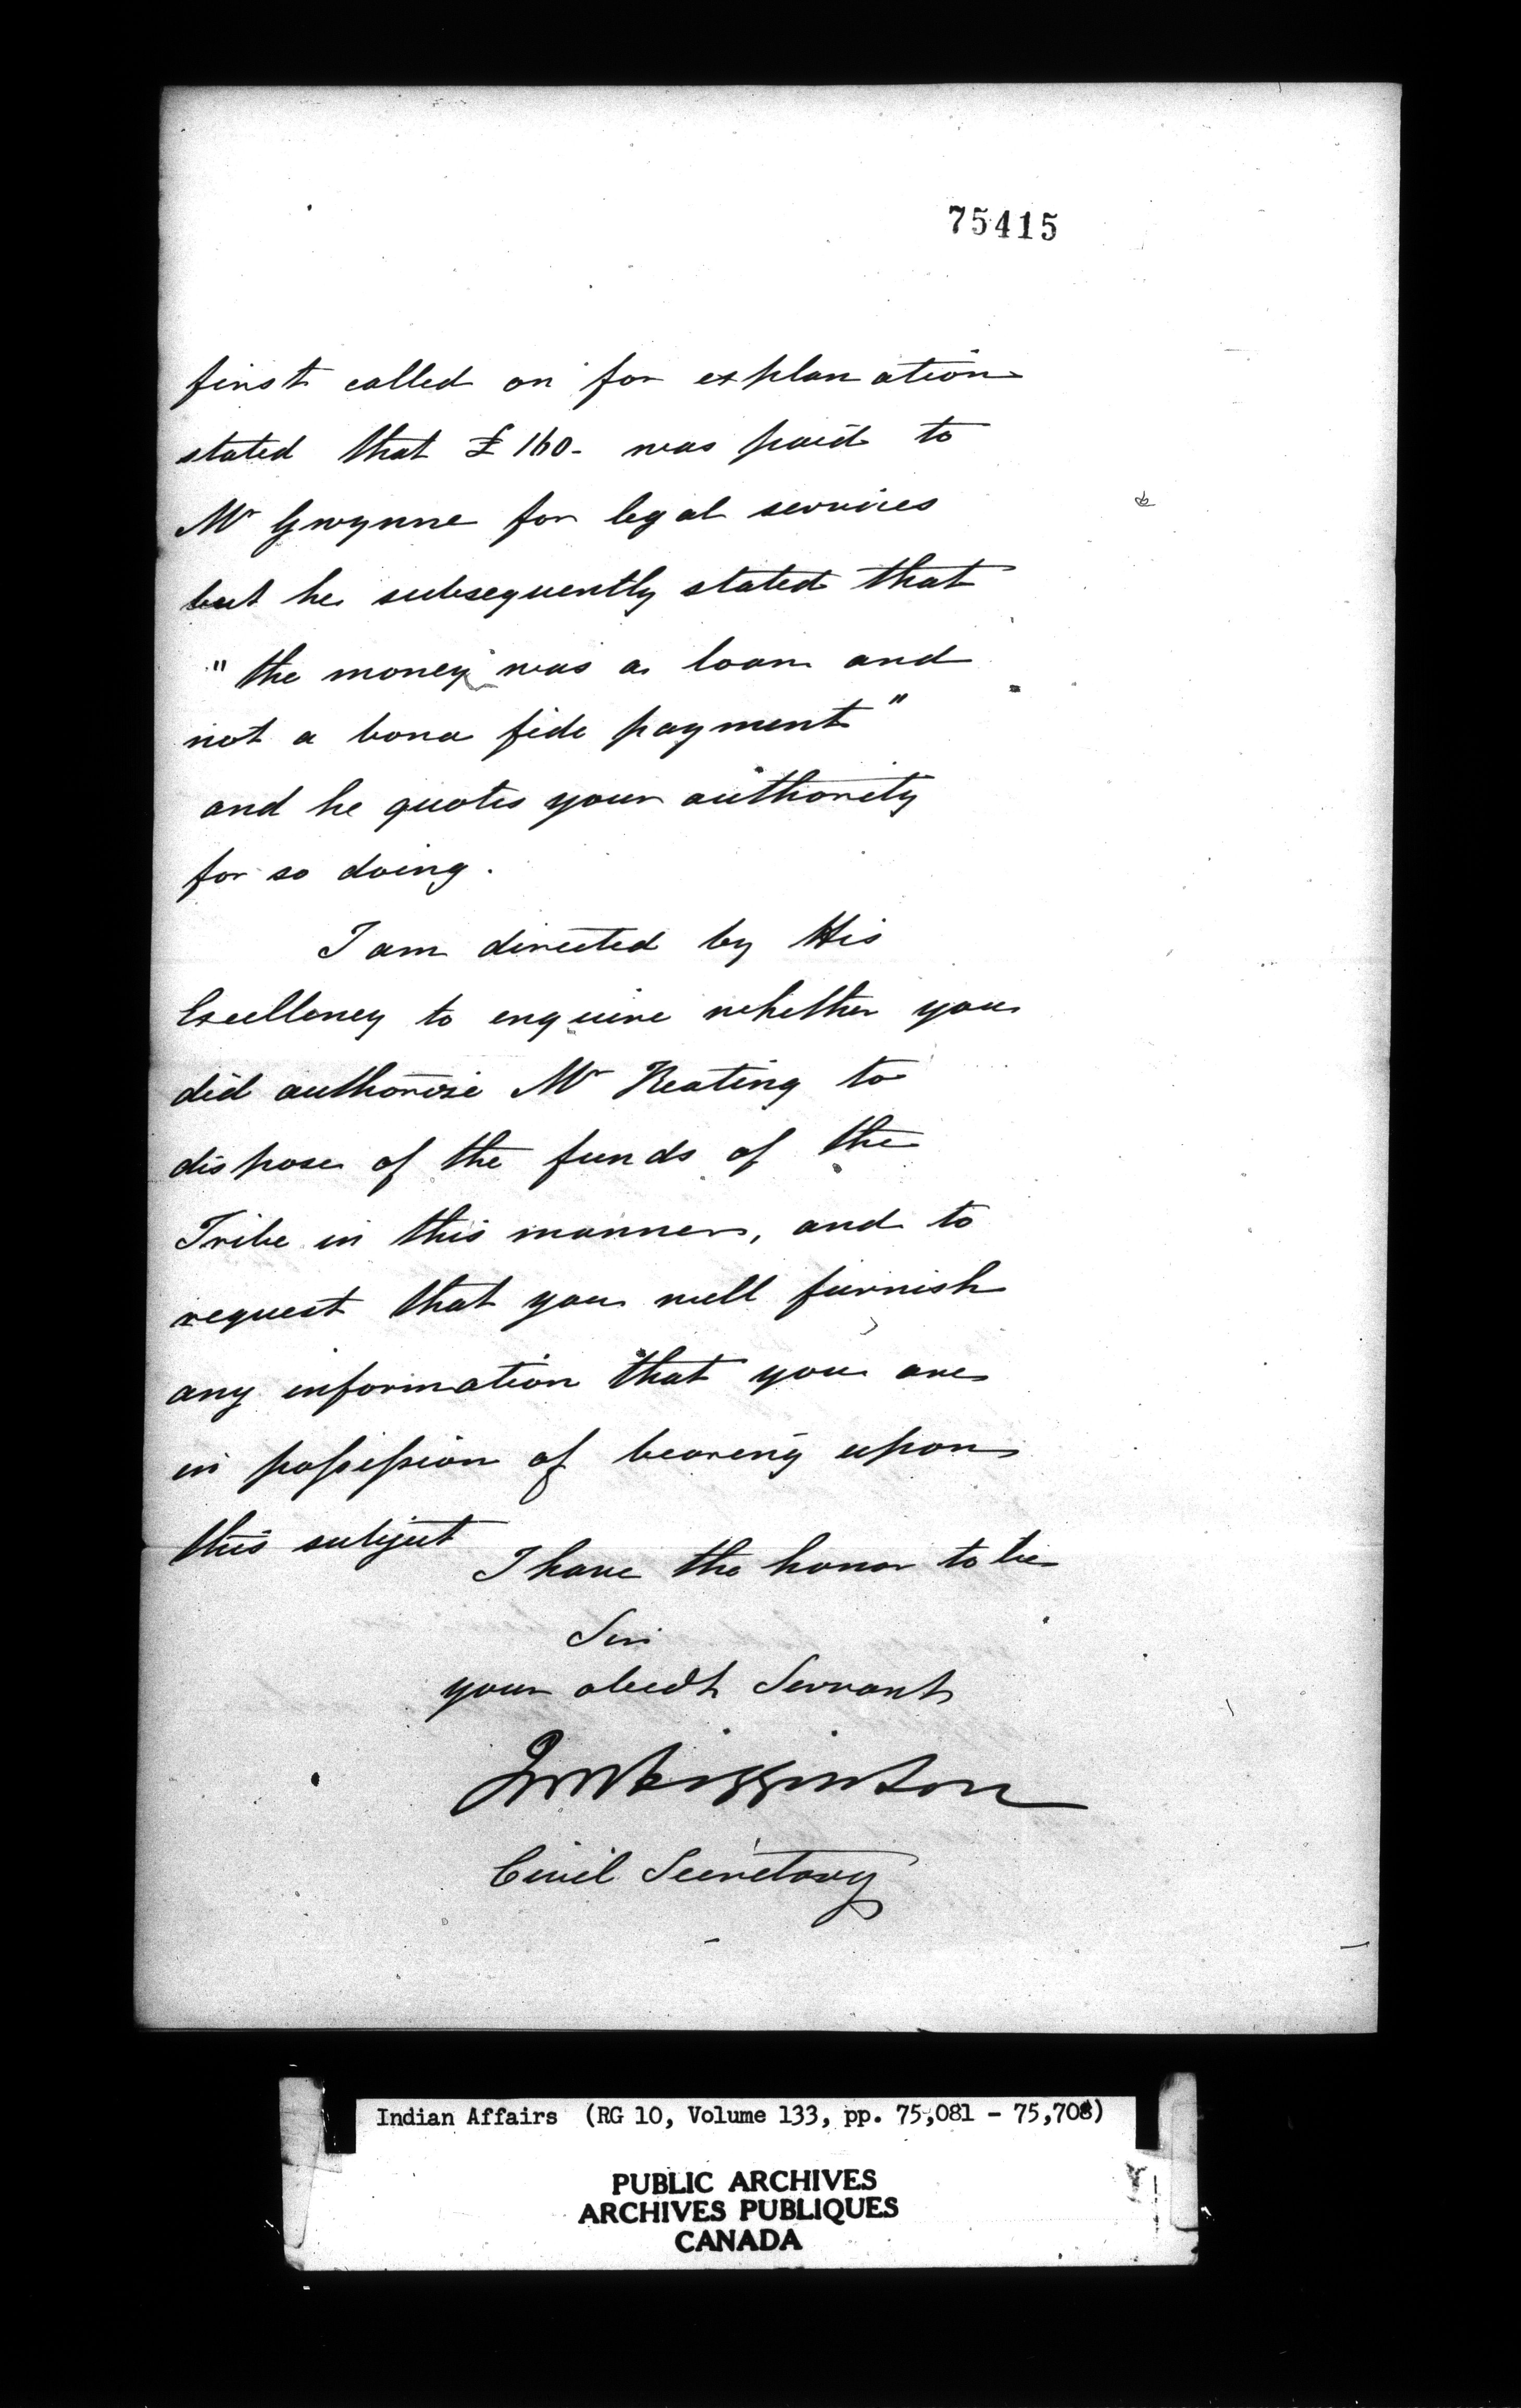 75415
first called on for explanation
stated that £160- was paid to
Mr Gwynne for legal services
but he subsequently stated that
"the money was a loan and
not a bona fide payment"
and he quotes your authority
for so doing.
I am directed by His
Excellency to enquire whether you
did authorise Mr Keating to
dispose of the funds of the
Tribe in this manner, and to
request that you will furnish
any information that you are
in possession of bearing upon
this subject
I have the honor to be
Sir
your obedt Servant
Civil Secretary
Indian Affairs (RG 10, Volume 133, pp. 75,081 - 75,708)
PUBLIC ARCHIVES
ARCHIVES PUBLIQUES
CANADA